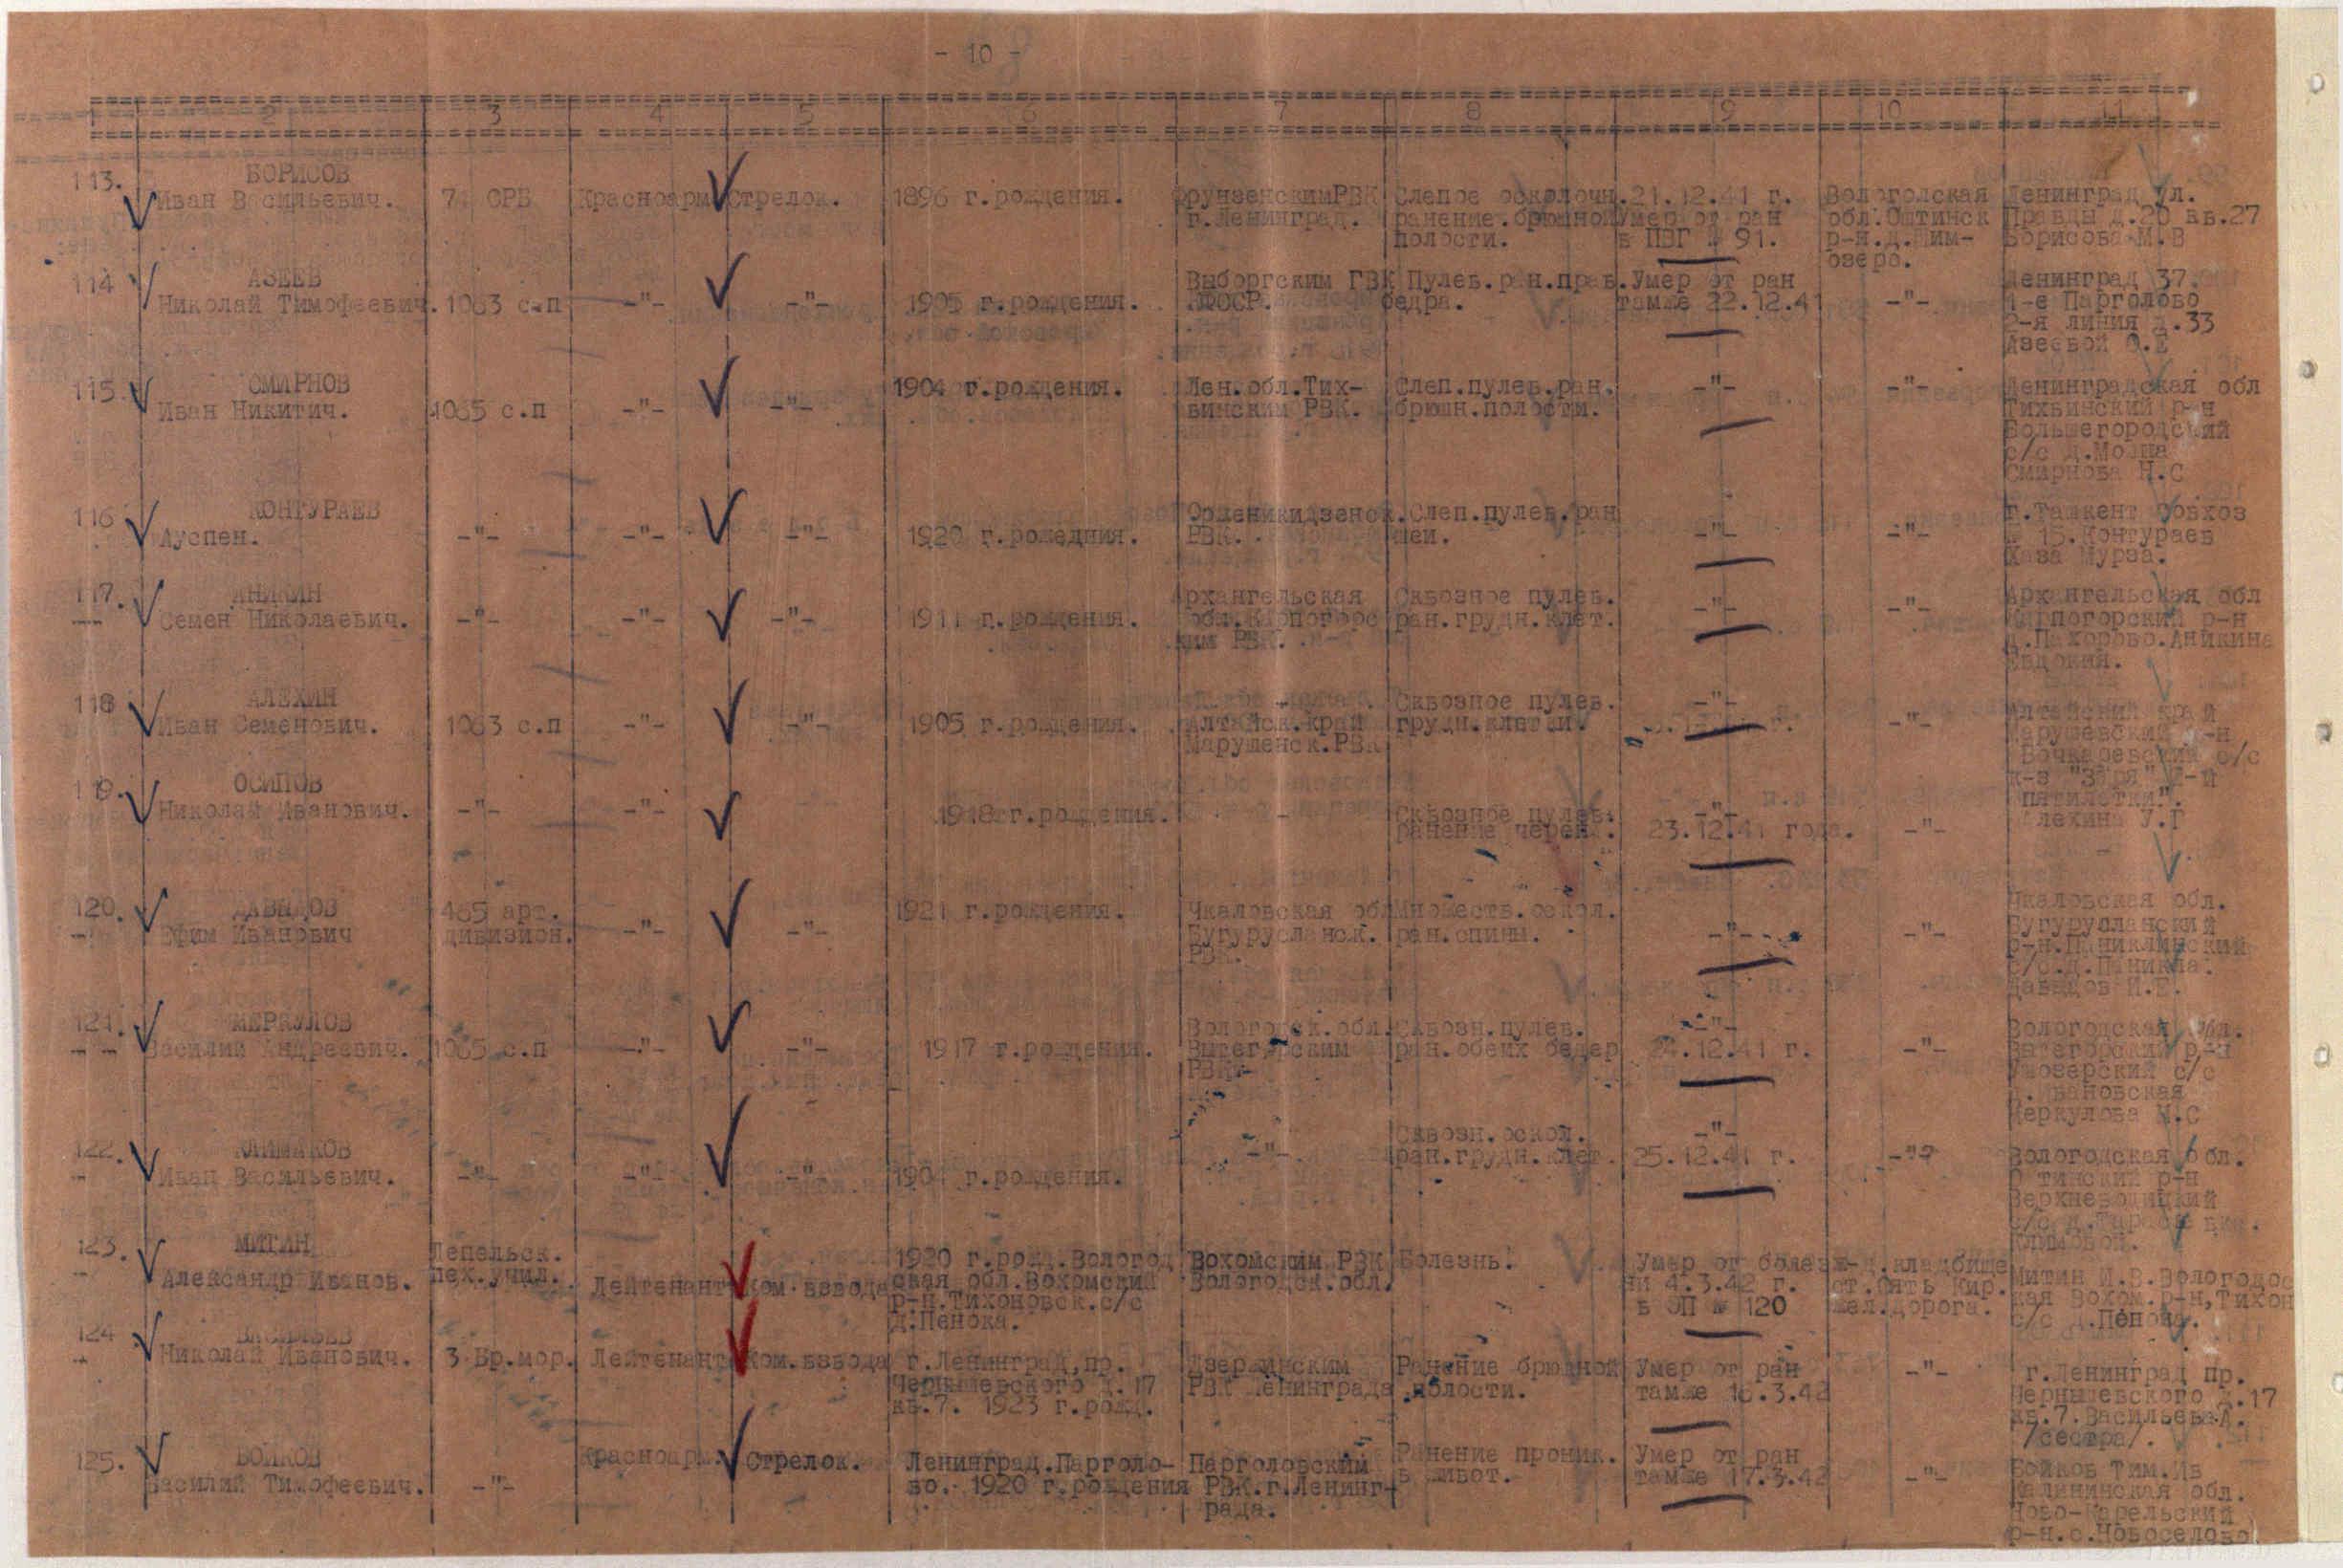 - 10 -
1 2 3 4 5 6 7 8 9 10 11
113. БОРИСОВ
Иван Васильевич. 71 ОРБ Красноарм Стрелок. 1896 г.рождения. ФрунзенскимРВК Слепое осколочн. 21.12.41 г. Вологодская Ленинград ул.
г.Ленинград. ранение.брюшной Умер от ран обл.Оштинск Правды д.20 кв.27
полости. в ППГ № 91. р-н.д.Ким- Борисова М.В
озеро.
114 АЗЕЕВ Выборгским ГВК Пулев.ран.прав. Умер от ран Ленинград 37.
Николай Тимофеевич. 1063 с.п -"- -"- 1905 г.рождения. бедра. тамже 22.12.41 -"- 1-е Парголово
2-я линия д.33
Азеевой О.Е
115. СМИРНОВ 1904 г.рождения. Лен.обл.Тих- Слеп.пулев.ран. -"- -"- Ленинградская обл
Иван Никитич. 1065 с.п -"- -"- винским РВК. брюшн.полости. Тихвинский р-н
Большегородский
с/с д.
Смирнова Н.С
116 КОНТУРАЕВ Орджоникидзенск. Слеп.пулев.ран г.Ташкент Совхоз
Ауспен. -"- -"- -"- 1920 г.рождения. РВК. шеи. -"- -"- № 15.Контураев
Каза Мурза.
117. АНИКИН Архангельская Сквозное пулев. Архангельская обл
Семен Николаевич. -"- -"- -"- 1911 г.рождения. обл.Карпогорс ран.грудн.клет. -"- -"- Карпогорский р-н
ким РВК. д.Пахорово.Аникина
Евдокия.
118 АЛЕХИН Сквозное пулев. -"-
Иван Семенович. 1063 с.п -"- -"- 1905 г.рождения. Алтайск.край грудн.клетки. -"- Алтайский край
Марушенск.РВК Марушевский р-н
Бочкаревский с/с
к-з "Заря" 2-й
119. ОСИПОВ пятилетки".
Николай Иванович. -"- -"- 1918 г.рождения. - Сквозное пулев. -"- Алехина У.Г
ранение череп. 23.12.41 года. -"-
-
120. ДАВЫДОВ 465 арт. 1921 г.рождения. Чкаловская обл Множеств.оскол. Чкаловская обл.
Ефим Иванович дивизион. -"- -"- Бугурусланск. ран.спины. -"- -"- Бугурусланский
РВК. р-н.Пониклинский
с/с.д.Поникла.
Давыдов И.Е.
121. МЕРКУЛОВ Вологодск.обл. Сквозн.пулев. -"- Вологодская обл.
Василий Андреевич. 1065 с.п -"- -"- 1917 г.рождения. Вытегорским ран.обеих бедер 24.12.41 г. -"- Вытегорский р-н
РВК. с/с
д.Ивановская
Меркулова М.С
122. КЛИМАКОВ Сквозн.оскол. -"-
Иван Васильевич. -"- -"- -"- 1904 г.рождения. -"- ран.грудн.клет. 25.12.41 г. -"- Вологодская обл.
Оштинский р-н
Верхневодлицкий
с/с
Климовой.
123. МИТИН Лепельск. 1920 г.рожд.Вологод Вохомским РВК Болезнь. Умер от болез ж-д.кладбище
Александр Иванов. пех.учил. Лейтенант Ком.взвода ская обл.Вохомский Вологодск.обл. ни 4.3.42 г. ст.Пять Кир. Митин И.В.Вологодс
р-н.Тихоновск.с/с в ЭП № 120 жел.дорога. кая Вохом.р-н,Тихон
д.Пенока. с/с д.Пенока.
124 ВАСИЛЬЕВ
Николай Иванович. 3 Бр.мор. Лейтенант Ком.взвода г.Ленинград,пр. Дзержинским Ранение брюшной Умер от ран -"- г.Ленинград пр.
Чернышевского д.17 РВК Ленинграда полости. тамже 16.3.42 Чернышевского д.17
кв.7. 1923 г.рожд. кв.7.Васильева А.
/сестра/.
125. БОЙКОВ Красноарм. Стрелок. Ленинград.Парголо- Парголовским Ранение проник. Умер от ран Бойков Тим.Ив
Василий Тимофеевич. -"- во. 1920 г.рождения РВК.г.Ленинг- в живот. тамже 17.3.42 -"- Калининская обл.
рада. Ново-Карельский
р-н.с.Новоселово